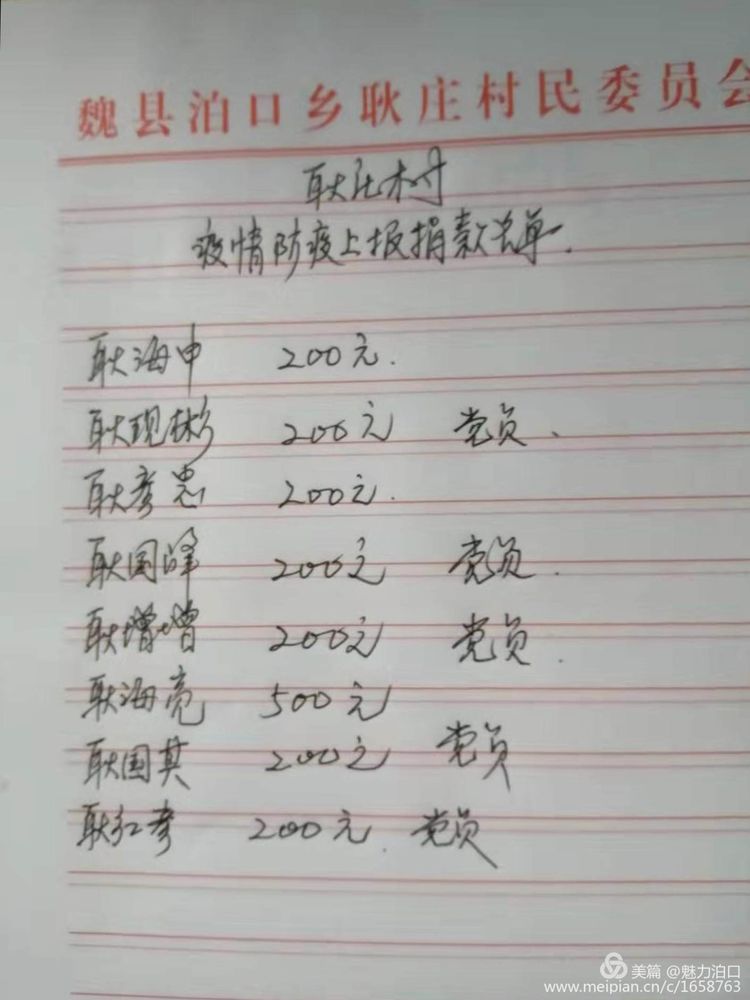 魏县泊口乡耿庄村民委员会
耿庄村
疫情防疫上报捐款名单.
耿海申 200元.
耿现彬 200元 党员.
耿彦忠 200元.
耿国峰 200元 党员.
耿增增 200元 党员.
耿海亮 500元
耿国其 200元 党员
耿红考 200元 党员
美篇 @魅力泊口
www.meipian.cn/c/1658763